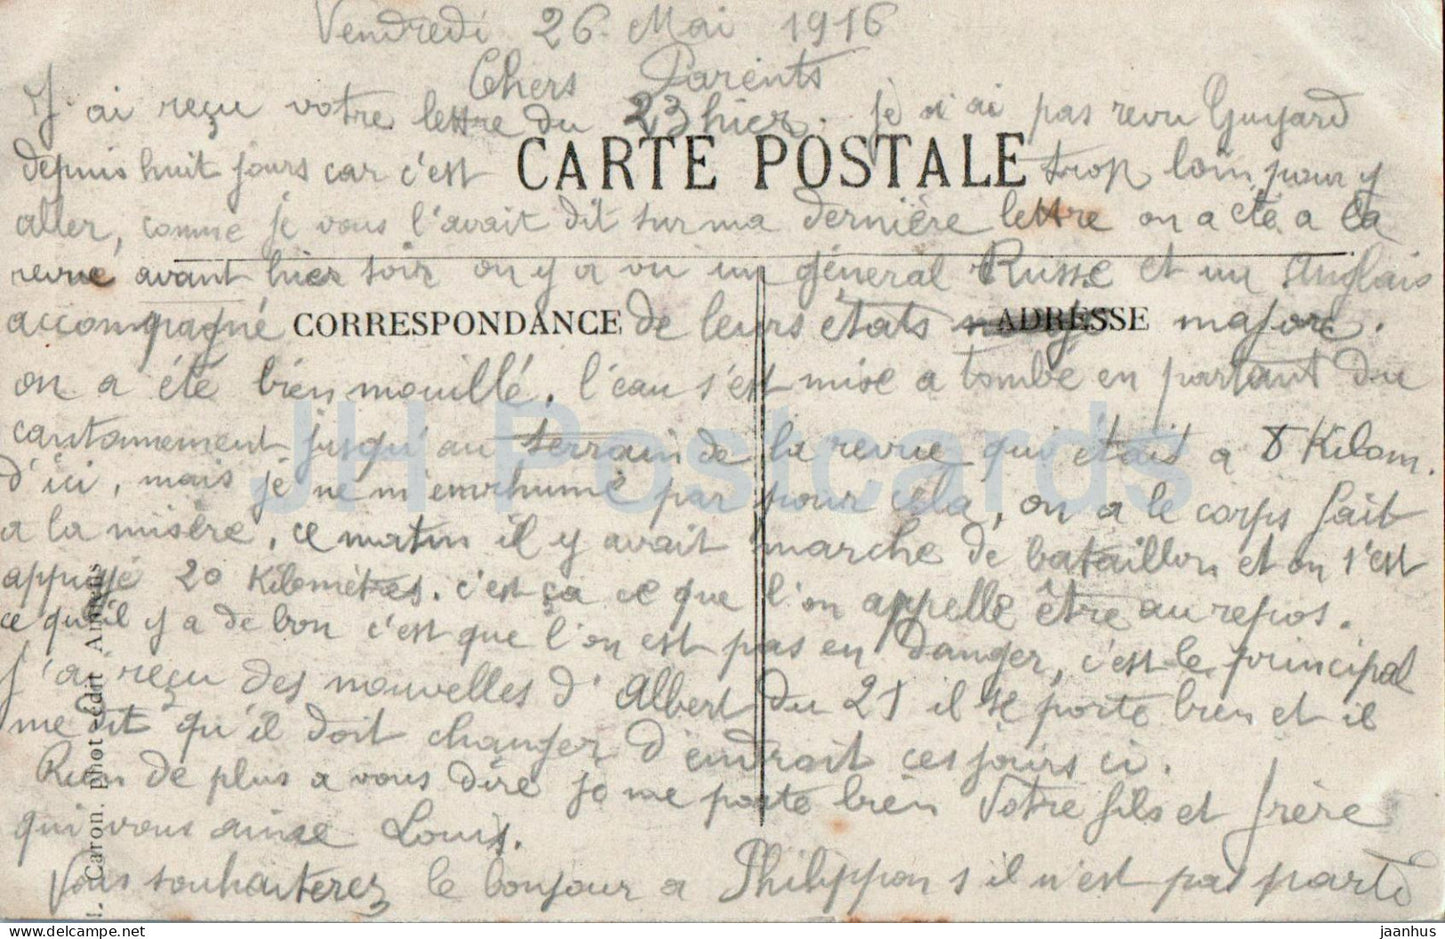 Vendredi 26 Mai 1916
Chers Parents
J'ai reçu votre lettre du 23 hier. je n'ai pas revu Guyard
CARTE POSTALE
depuis huit jours car c'est trop loin pour y
aller, comme je vous l'avait dit sur ma dernière lettre on a été a la
revue avant hier soir on y a vu un général Russe et un Anglais
accompagné de leurs états major.
CORRESPONDANCE
ADRESSE
on a été bien mouillé, l'eau s'est mise a tombé en partant du
cantonnement jusqu'au terrain de la revue qui était a 8 Kilom.
d'ici, mais je ne m'enrhume par pour cela, on a le corps fait
a la misère, ce matin il y avait marche de bataillon et on s'est
appuyé 20 Kilomètres. c'est ça ce que l'on appelle être au repos.
ce qu'il y a de bon c'est que l'on est pas en danger, c'est le principal
J'ai reçu des nouvelles d'Albert du 21 il se porte bien et il
me dit qu'il doit changer d'endroit ces jours ci.
Rien de plus a vous dire je me porte bien Votre fils et frère
qui vous aime Louis.
Vous souhaiterez le bonjour a Philippon s'il n'est pas parti
L. Caron. phot-edit Amiens
JH Postcards
delcampe.net
jaanhus